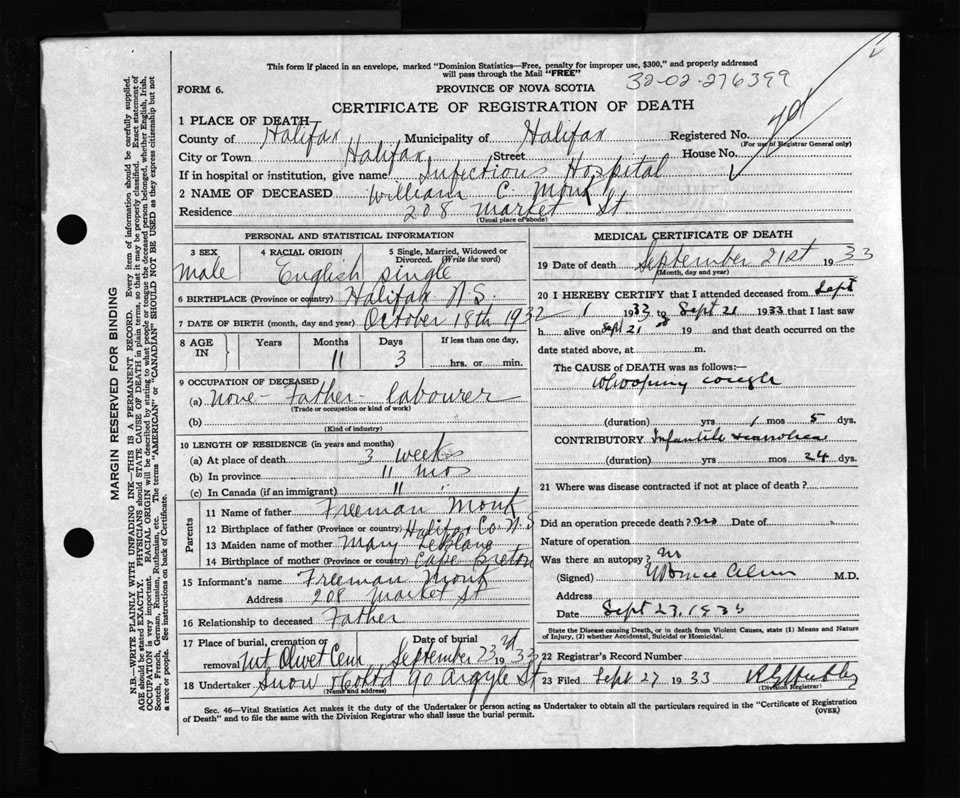 This form if placed in an envelope, marked "Dominion Statistics—Free, penalty for improper use, $300," and properly addressed
will pass through the Mail "FREE"
32-02-276399
FORM 6.
PROVINCE OF NOVA SCOTIA
CERTIFICATE OF REGISTRATION OF DEATH
1 PLACE OF DEATH
County of Halifax Municipality of Halifax Registered No.
(For use of Registrar General only)
City or Town Halifax Street House No.
If in hospital or institution, give name Infectious Hospital
2 NAME OF DECEASED William C. Monk
Residence 208 Market St
(Usual place of abode)
PERSONAL AND STATISTICAL INFORMATION
3 SEX 4 RACIAL ORIGIN 5 Single, Married, Widowed or
Divorced. (Write the word)
Male English single
6 BIRTHPLACE (Province or country) Halifax N.S.
7 DATE OF BIRTH (month, day and year) October 18th 1932
8 AGE IN Years Months Days If less than one day,
11 3 hrs. or min.
9 OCCUPATION OF DECEASED
(a) None - Father - labourer
(Trade or occupation or kind of work)
(b)
(Kind of industry)
10 LENGTH OF RESIDENCE (in years and months)
(a) At place of death 3 weeks
(b) In province 11 mos
(c) In Canada (if an immigrant) 11 "
Parents
11 Name of father Freeman Monk
12 Birthplace of father (Province or country) Halifax Co. N.S
13 Maiden name of mother Mary LeBlanc
14 Birthplace of mother (Province or country) Cape Breton
15 Informant's name Freeman Monk
Address 208 Market St
16 Relationship to deceased Father
17 Place of burial, cremation or removal Mt Olivet Cem Date of burial September 23rd 1933
18 Undertaker Snow & Co Ltd 90 Argyle St
(Name and address)
MEDICAL CERTIFICATE OF DEATH
19 Date of death September 21st 1933
(Month, day and year)
20 I HEREBY CERTIFY that I attended deceased from Sept
1 1933 to Sept 21 1933 that I last saw
h alive on Sept 21 19 and that death occurred on the
date stated above, at m.
The CAUSE OF DEATH was as follows:—
Whooping cough
(duration) yrs 1 mos 5 dys.
CONTRIBUTORY Infantile
(duration) yrs mos 24 dys.
21 Where was disease contracted if not at place of death?
Did an operation precede death? no Date of
Nature of operation
Was there an autopsy? no
(Signed) M.D.
Address
Date Sept 23, 1933
State the Disease causing Death, or in death from Violent Causes, state (1) Means and Nature
of Injury, (2) whether Accidental, Suicidal or Homicidal.
22 Registrar's Record Number
23 Filed Sept 27 1933
(Division Registrar)
Sec. 46—Vital Statistics Act makes it the duty of the Undertaker or person acting as Undertaker to obtain all the particulars required in the "Certificate of Registration
of Death" and to file the same with the Division Registrar who shall issue the burial permit. (OVER)
MARGIN RESERVED FOR BINDING
N.B.—WRITE PLAINLY WITH UNFADING INK—THIS IS A PERMANENT RECORD. Every item of information should be carefully supplied.
AGE should be stated EXACTLY. PHYSICIANS should STATE CAUSE OF DEATH in plain terms, so that it may be properly classified. Exact statement of
OCCUPATION is very important. RACIAL ORIGIN will be described by stating to what people or tongue the deceased person belonged, whether English, Irish,
Scotch, French, German, Russian, Ruthenian, etc. The terms "AMERICAN" or "CANADIAN" SHOULD NOT BE USED as they express citizenship but not
a race or people. See instructions on back of Certificate.